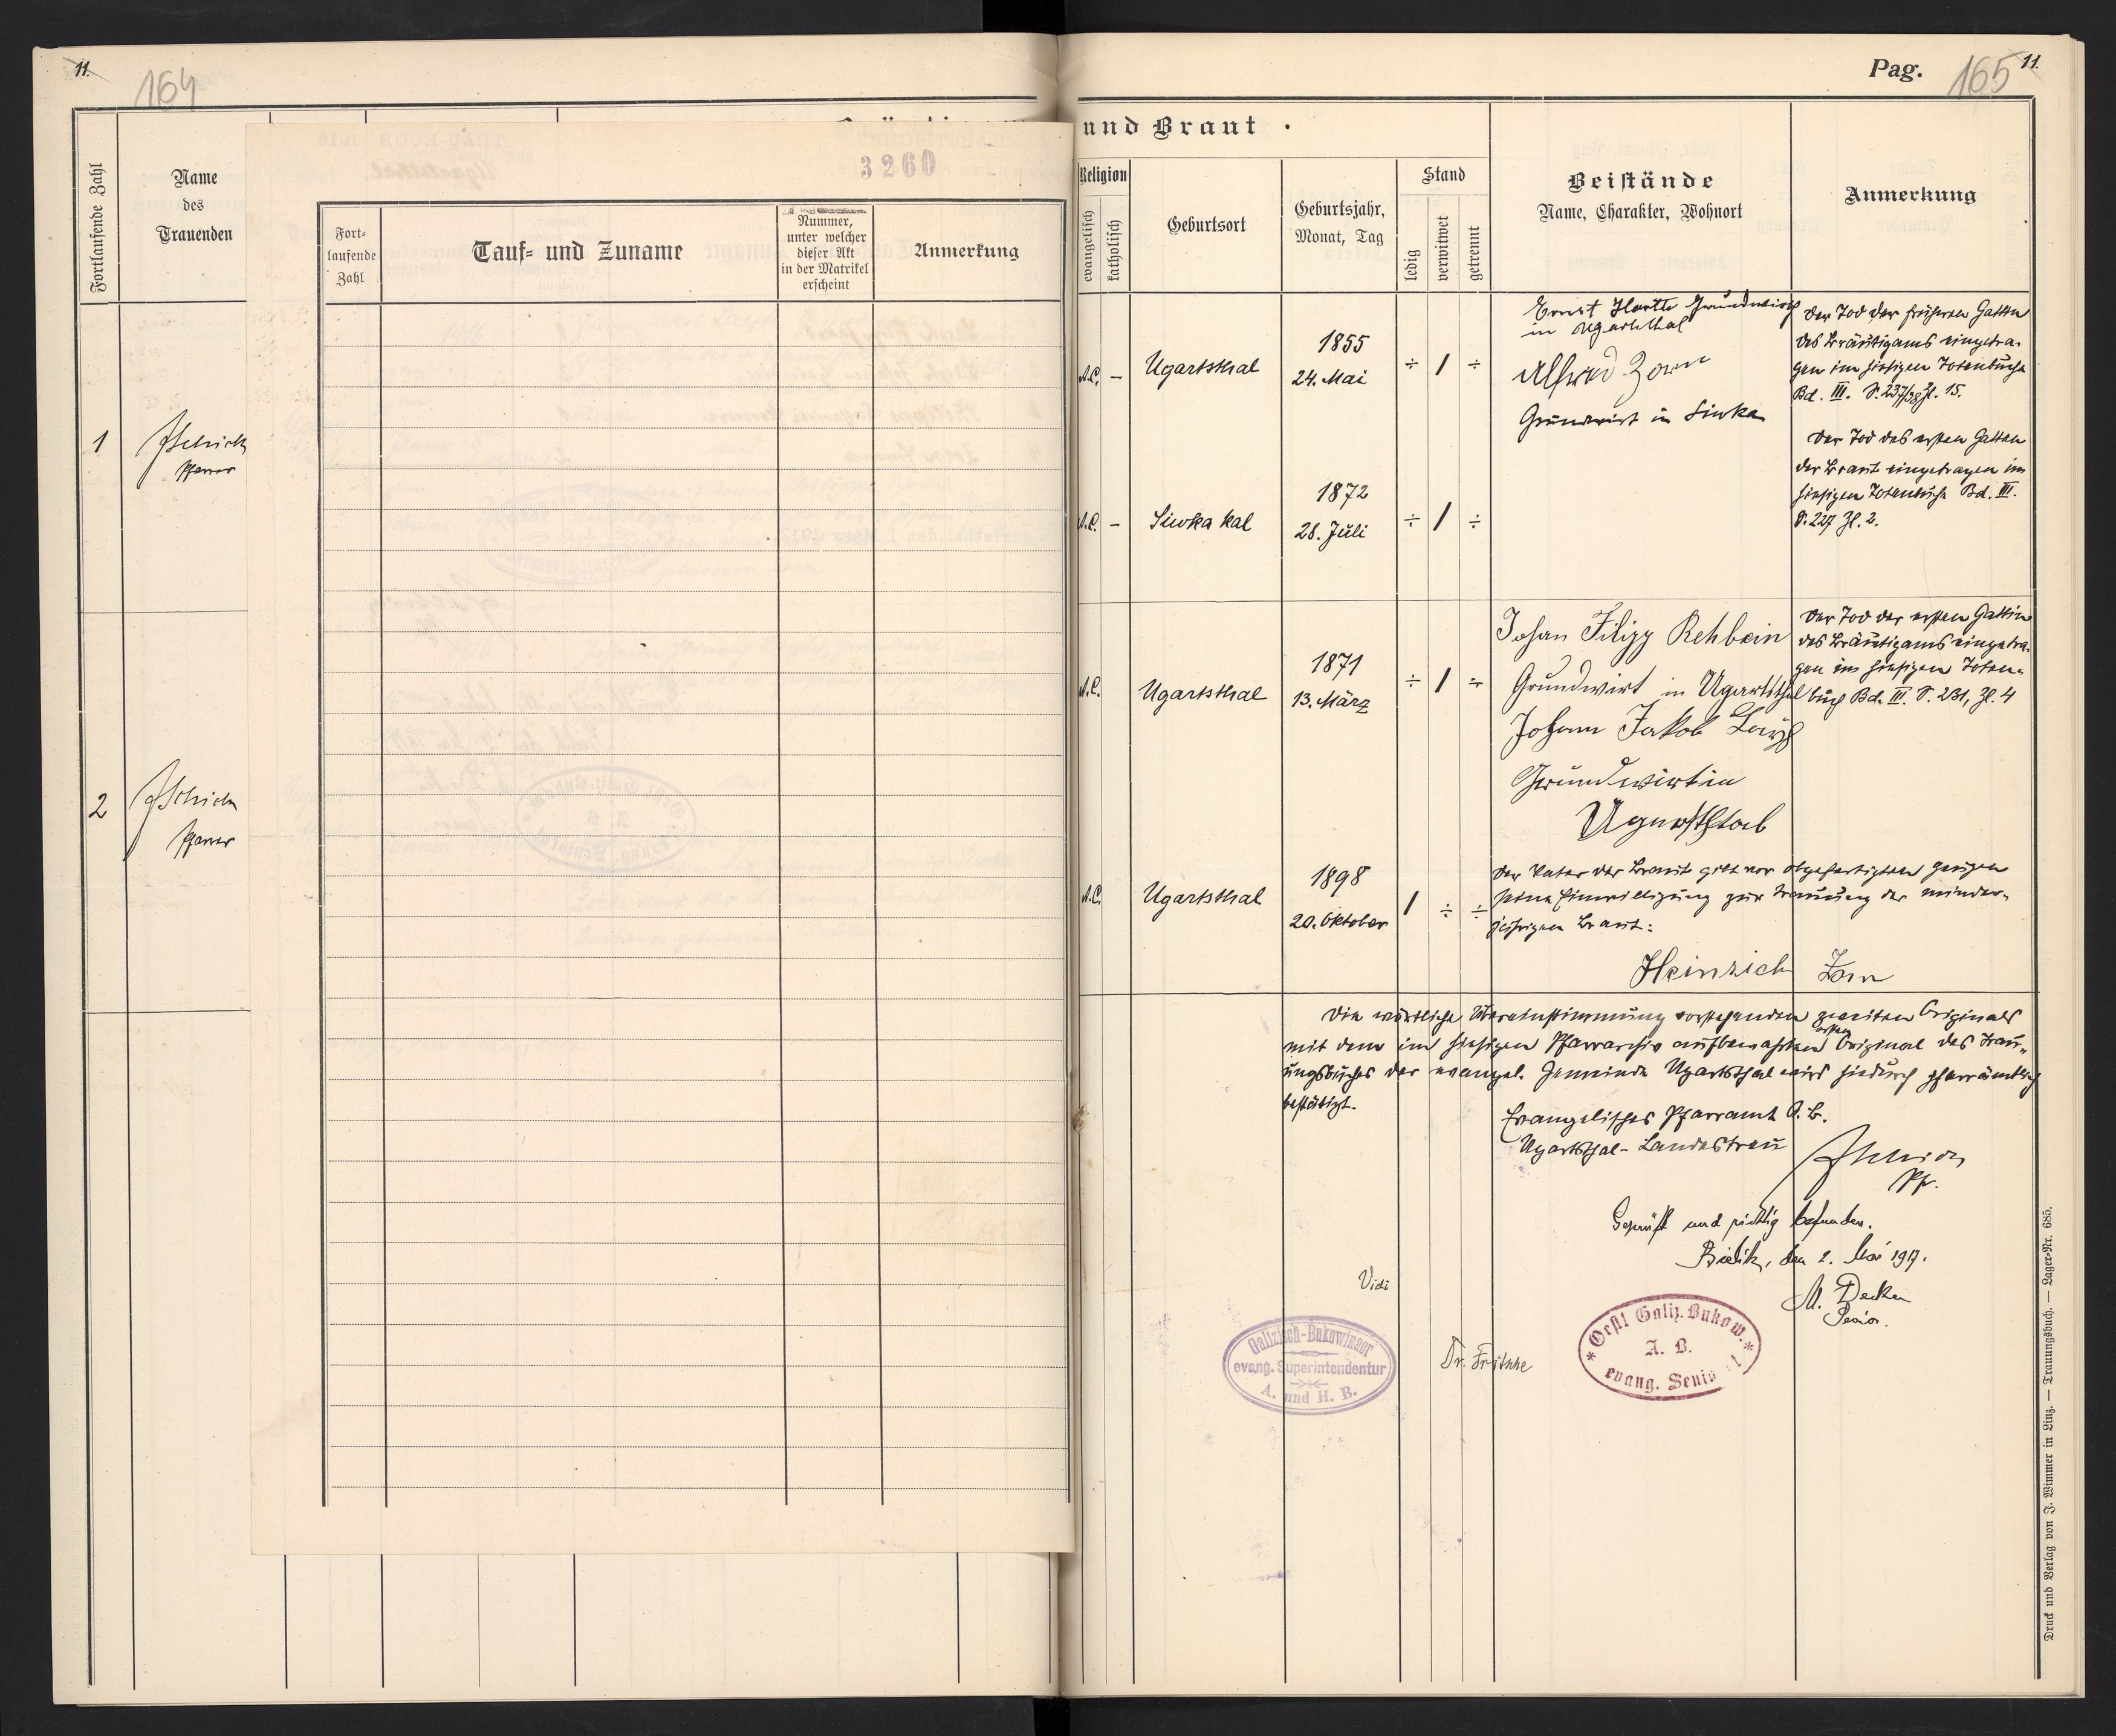 11.
164
Fortlaufende Zahl
Name
des
Trauenden
1
Pfarrer
2
Pfarrer
3260
Fort-
laufende
Zahl
Tauf- und Zuname
Nummer,
unter welcher
dieser Akt
in der Matrikel
erscheint
Anmerkung
Pag. 165 11.
und Braut
Religion
evangelisch
katholisch
Geburtsort
Geburtsjahr,
Monat, Tag
Stand
ledig
verwitwet
getrennt
Beistände
Name, Charakter, Wohnort
Anmerkung
A.C. –
Ugartsthal
1855
24. Mai
÷ 1 ÷
Ernst Grundwirt
in Ugartsthal
Alfred Zorn
Grundwirt in Siwka
Der Tod der früheren Gattin
des Bräutigams eingetra-
gen im hiesigen Totenbuche
Bd. III. S. 237/38 Zl. 15.
A.C. –
Siwka kal
1872
28. Juli
÷ 1 ÷
Der Tod des ersten Gatten
der Braut eingetragen im
hiesigen Totenbuche Bd. III.
S. 227 Zl. 2.
A.C.
Ugartsthal
1871
13. März
÷ 1 ÷
Johan Filipp Rehbein
Grundwirt in Ugartsthal
Johann Jakob
Grundwirt in
Ugartsthal
Der Tod der ersten Gattin
des Bräutigams eingetra-
gen im hiesigen Toten-
buch Bd. III. S. 231, Zl. 4
A.C.
Ugartsthal
1898
20. Oktober
1 ÷ ÷
Der Vater der Braut gibt vor obgefertigten Zeugen
seine Einwilligung zur Trauung der minder-
jährigen Braut:
Heinrich Zorn
Die wörtliche Übereinstimmung vorstehenden zweiten Originals
mit dem im hiesigen Pfarrarchiv aufbewahrten ersten Original des Trau-
ungsbuches der evangel. Gemeinde Ugartsthal wird hiedurch pfarrämtlich
bestätigt.
Evangelisches Pfarramt A.B.
Ugartsthal-Landestreu
Pfr.
Geprüft und richtig befunden.
den 2. Mai 1917.
M. Decker
Senior.
Vidi
Galizisch-Bukowinaer
evang. Superintendentur
A. und H. B.
Dr. Fritsche
Oestl Galiz. Bukow.
A. B.
evang. Senio
Druck und Verlag von J. Wimmer in Linz. — Trauungsbuch. — Lager-Nr. 685.